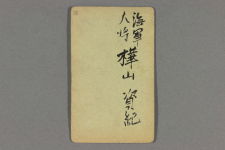 海軍
大将
樺山資紀